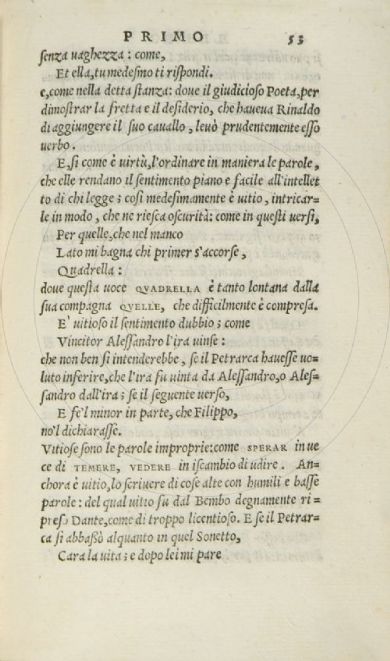 PRIMO 53
senza uaghezza : come,
Et ella, tu medesmo ti rispondi.
e, come nella detta stanza: doue il giudicioso Poeta, per
dimostrar la fretta e il desiderio, che haueua Rinaldo
di aggiungere il suo cauallo, leuò prudentemente esso
uerbo.
E, si come è uirtù, l'ordinare in maniera le parole,
che elle rendano il sentimento piano e facile all'intellet
to di chi legge; cosi medesimamente è uitio, intricar=
le in modo, che ne riesca oscurità: come in questi uersi,
Per quelle, che nel manco
Lato mi bagna chi primer s'accorse,
Quadrella :
doue questa uoce QVADRELLA è tanto lontana dalla
sua compagna QVELLE, che difficilmente è compresa.
E' uitioso il sentimento dubbio; come
Vincitor Alessandro l'ira uinse:
che non ben si intenderebbe, se il Petrarca hauesse uo=
luto inferire, che l'ira fu uinta da Alessandro, o Ales=
sandro dall'ira; se il seguente uerso,
E fe'l minor in parte, che Filippo,
no'l dichiarasse.
Vitiose sono le parole improprie: come SPERAR in ue
ce di TEMERE, VEDERE in iscambio di udire. An=
chora è uitio, lo scriuere di cose alte con humili e basse
parole: del qual uitio fu dal Bembo degnamente ri=
preso Dante, come di troppo licentioso. E se il Petrar=
ca si abbassò alquanto in quel Sonetto,
Cara la uita; e dopo lei mi pare